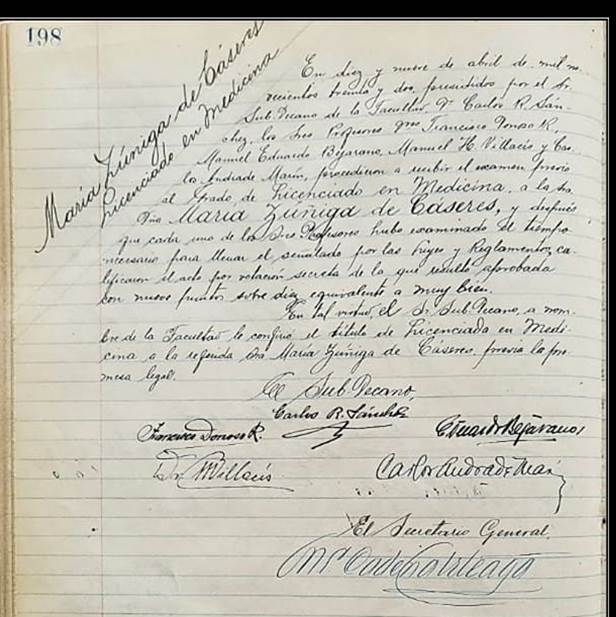 198
María Zúñiga de Cáseres
Licenciado en Medicina
En diez y nueve de abril de mil no-
vecientos treinta y dos, presididos por el Sr.
Sub. Decano de la Facultad, Dr. Carlos R. Sán-
chez, los Sres Profesores Dres Francisco Donoso R.,
Manuel Eduardo Bejarano, Manuel H. Villacís y Car-
los Andrade Marín, procedieron a recibir el examen previo
al Grado de Licenciado en Medicina, a la Sra
Dña María Zúñiga de Cáseres, y después
que cada uno de los Sres Profesores hubo examinado el tiempo
necesario para llenar el señalado por las Leyes y Reglamentos, ca-
lificaron el acto por votación secreta de la que resultó aprobada
con nueve puntos sobre diez equivalente a muy bien.
En tal virtud, el Sr. Sub. Decano, a nom-
bre de la Facultad le confirió el título de Licenciada en Medi-
cina a la referida Sra María Zúñiga de Cáseres, previa la pro-
mesa legal.
El Sub Decano,
Carlos R. Sánchez
Francisco Donoso R.
Eduardo Bejarano
Dr. MVillacís
Carlos Andrade Marín
El Secretario General,